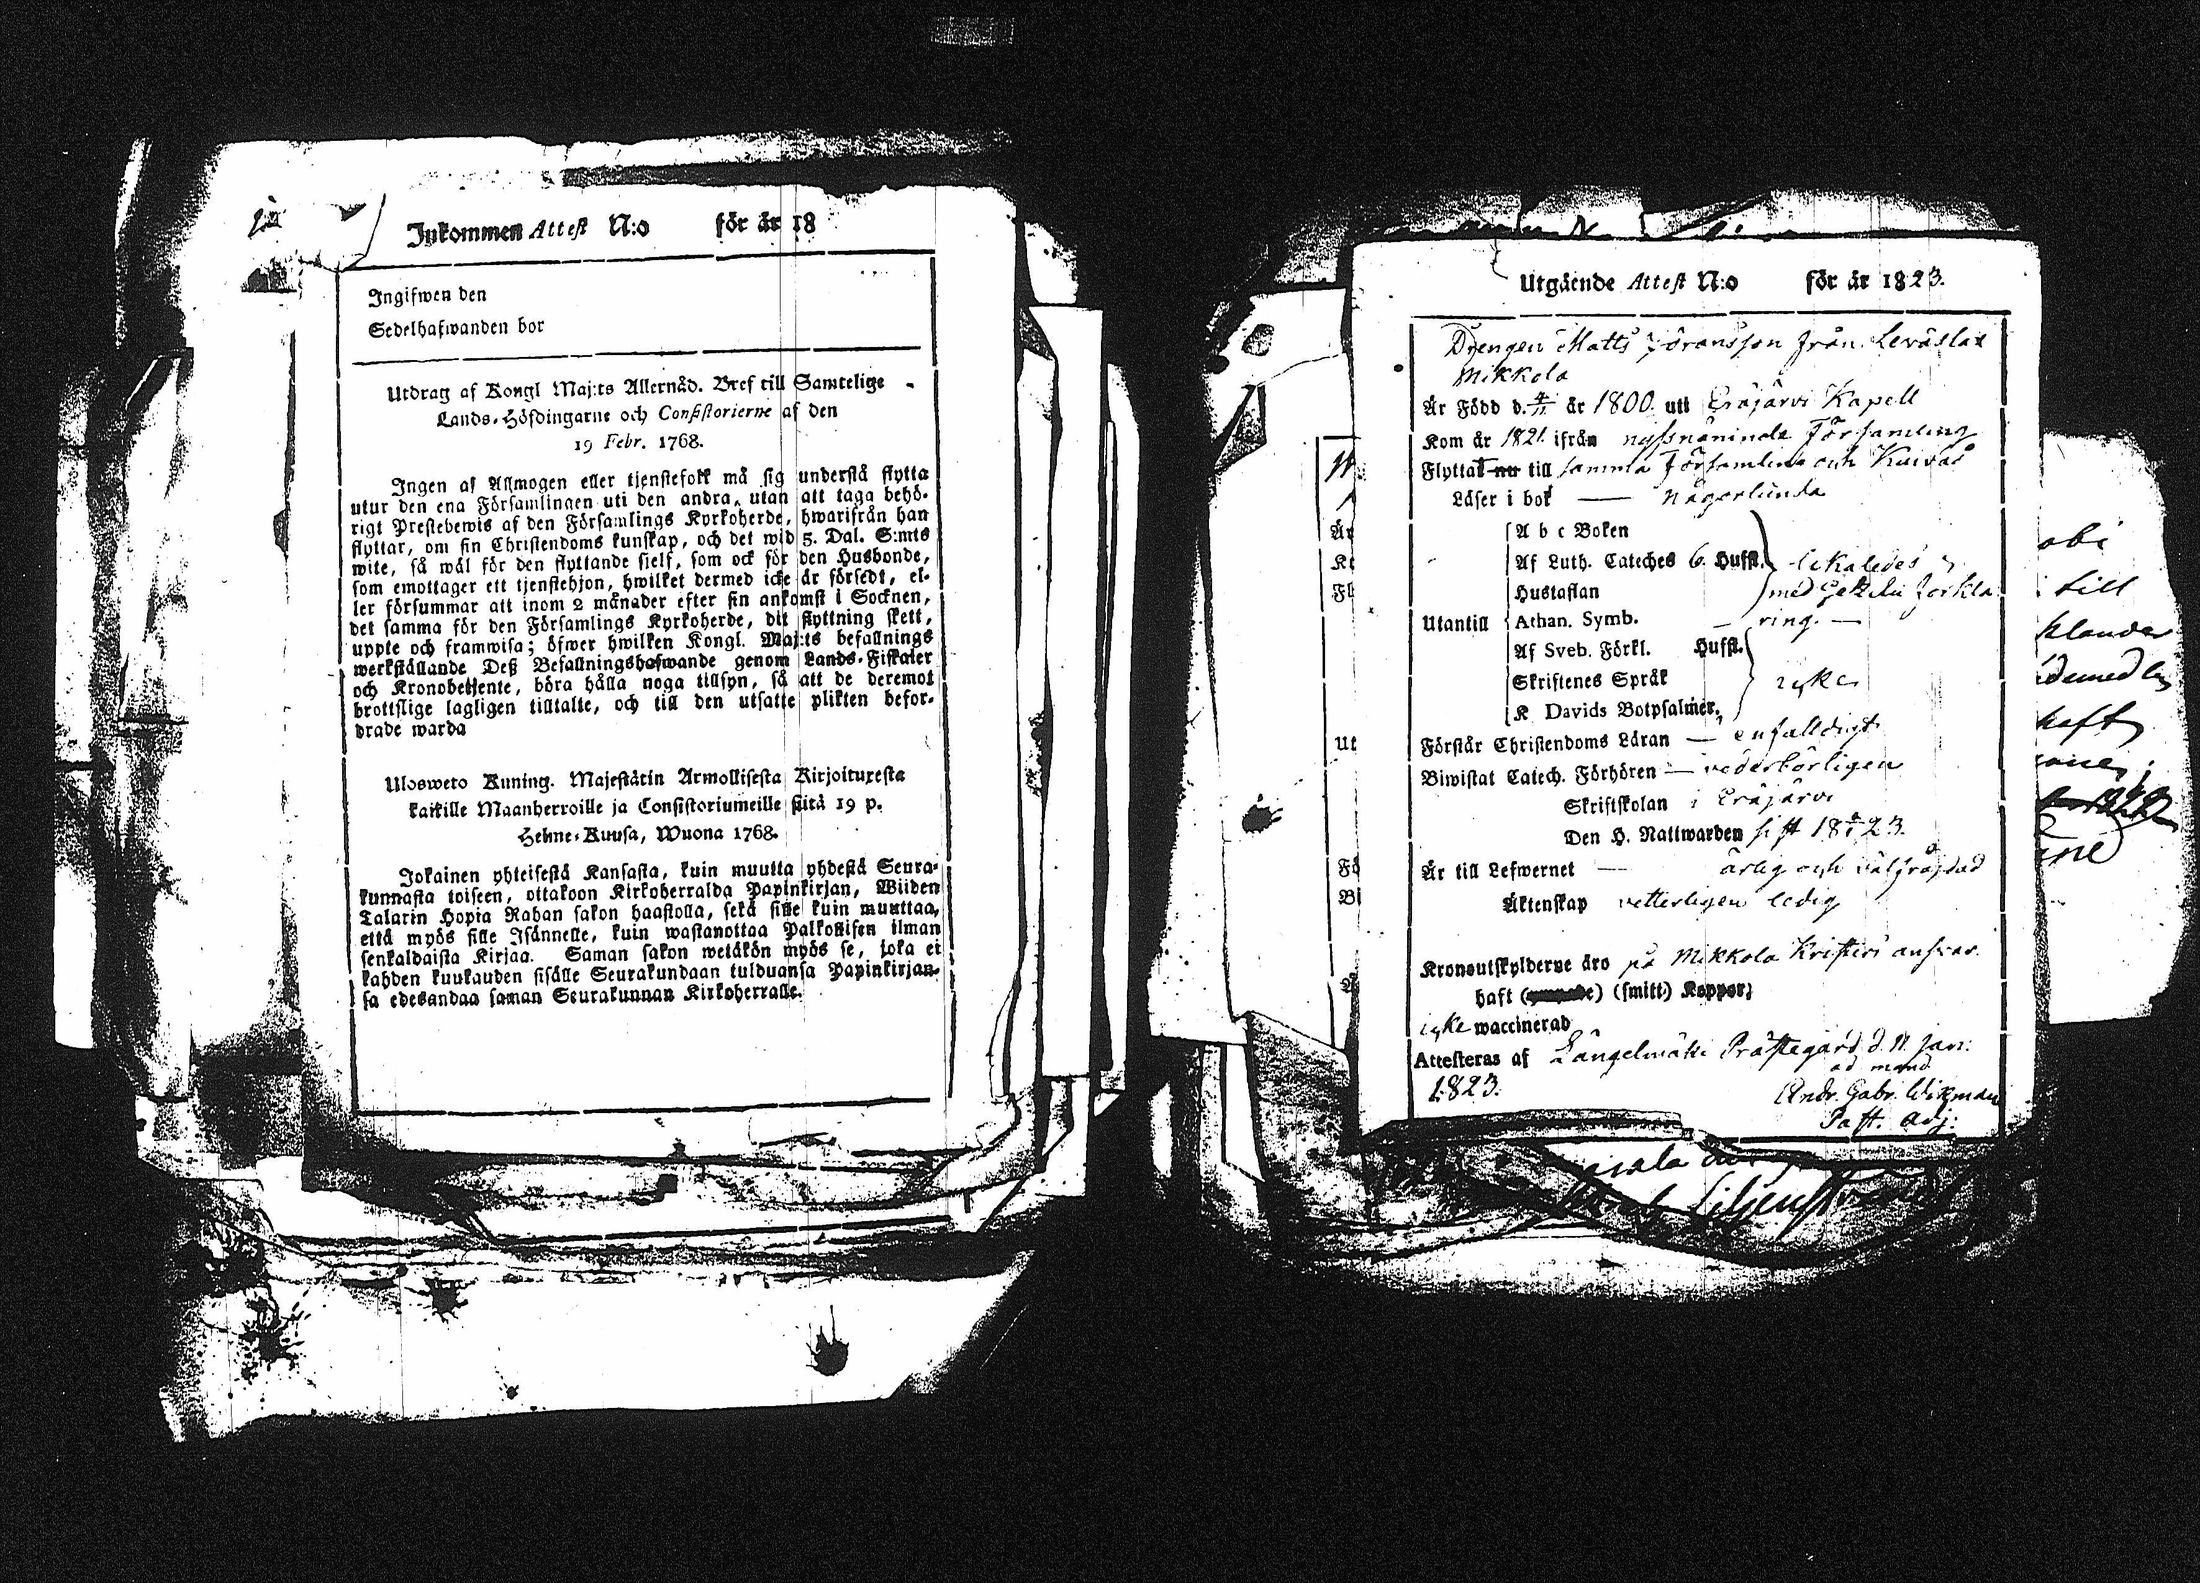 Inkommen Attest N:o för år 18
Ingifwen den
Sedelhafwanden bor
Utdrag af Kongl Maj:ts Allernåd. Bref till Samtelige
Lands-Höfdingarne och Consistorierne af den
19 Febr. 1768.
Ingen af Allmogen eller tjenstefolk må sig understå flytta
utur den ena Församlingen uti den andra, utan att taga behö-
rigt Prestebewis af den Församlings Kyrkoherde, hwarifrån han
flyttar, om sin Christendoms kunskap, och det wid 5. Dal. S:mts
wite, så wäl för den flyttande sielf, som ock för den Husbonde,
som emottager ett tjenstehjon, hwilket dermed icke är försedt, el-
ler försummar att inom 2 månader efter sin ankomst i Socknen,
det samma för den Församlings Kyrkoherde, dit flyttning skett,
uppte och framwisa; öfwer hwilken Kongl. Maj:ts befallnings
werkställande Deß Befallningshafwande genom Lands-Fiskaler
och Kronobetjente, böra hålla noga tillsyn, så att de deremot
brottslige lagligen tilltalte, och till den utsatte plikten befor-
drade warda
Ulosweto Kuning. Majestätin Armollisesta Kirjoituxesta
kaikille Maanherroille ja Consistoriumeille siitä 19 p.
Helme-Kuusa, Wuona 1768.
Jokainen yhteisestä Kansasta, kuin muutta yhdestä Seura-
kunnasta toiseen, ottakoon Kirkoherralda Papinkirjan, Wiiden
Talarin Hopia Rahan sakon haastolla, sekä sille kuin muuttaa,
että myös sille Isännelle, kuin wastanottaa Palkollisen ilman
senkaldaista Kirjaa. Saman sakon wetäkön myös se, joka ei
kahden kuukauden sisälle Seurakundaan tulduansa Papinkirjan-
sa edesandaa saman Seurakunnan Kirkoherralle.
Utgående Attest N:o för år 1823.
Drengen Matts Jöransson från Leväslax
Mikkola
Är Född d. 4/11 år 1800. uti Eräjärvi Kapell
Kom år 1821. ifrån nyssnämnde Församling
Flyttat nu till samma Församling och Kuivas
Läser i bok — någorlunda
A b c Boken
Af Luth. Cateches 6. Hufst. likaledes
Hustaflan med Getzelii förkla
Utantill Athan. Symb. — ring. —
Af Sveb. Förkl. Hufst.
Skriftenes Språk icke
K Davids Botpsalmer,
Förstår Christendoms Läran — enfalldigt
Biwistat Catech. Förhören — vederbörligen
Skriftskolan i Eräjärvi
Den H. Nattwarden sist 18 23.
Är till Lefwernet — ärlig och välfräjdad
Äktenskap vetterligen ledig
Kronoutskylderne äro på Mikkola Kristers ansvar.
haft (smitt) Koppor;
icke waccinerad
Attesteras af Längelmäki Prästegård d. 11 Jan:
1823. ad mand.
Andr. Gabr. Wikman
Past. Adj: